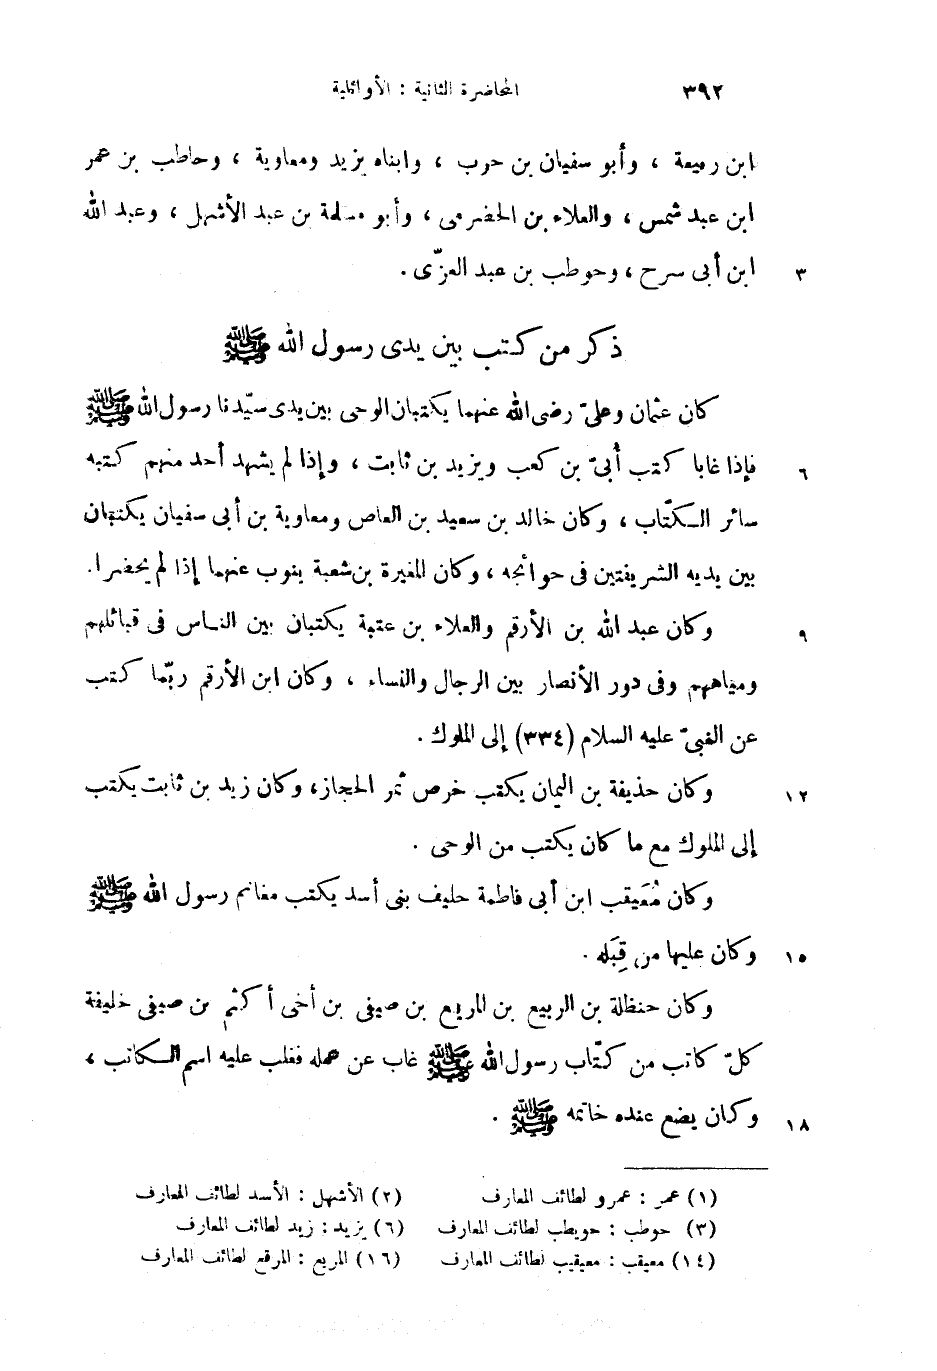 ٣٩٢ المحاضرة الثانية : الأوائلية
ابن رميعة ، وأبو سفيان بن حرب ، وابناه يزيد ومعاوية ، وحاطب بن عمر
ابن عبد شمس ، والعلاء بن الحضرمى ، وأبو مسلمة بن عبد الأشهل ، وعبد الله
٣ ابن أبى سرح ، وحوطب بن عبد العزّى .
ذكر من كتب بين يدى رسول الله ﷺ
كان عثمان وعلىّ رضى الله عنهما يكتبان الوحى بين يدى سيّدنا رسول الله ﷺ
٦ فإذا غابا كتب أُبىّ بن كعب ويزيد بن ثابت ، وإذا لم يشهد أحد منهم كتبه
سائر الكتّاب ، وكان خالد بن سعيد بن العاص ومعاوية بن أبى سفيان يكتبان
بين يديه الشريفتين فى حوائجه ، وكان المغيرة بن شعبة ينوب عنهما إذا لم يحضرا .
٩ وكان عبد الله بن الأرقم والعلاء بن عتبة يكتبان بين الناس فى قبائلهم
ومياههم وفى دور الأنصار بين الرجال والنساء ، وكان ابن الأرقم ربّما كتب
عن النبىّ عليه السلام (٣٣٤) إلى الملوك .
١٢ وكان حذيفة بن اليمان يكتب خرص ثمر الحجاز ، وكان زيد بن ثابت يكتب
إلى الملوك مع ما كان يكتب من الوحى .
وكان مُعَيقب ابن أبى فاطمة حليف بنى أسد يكتب مغانم رسول الله ﷺ
١٥ وكان عليها من قِبَله .
وكان حنظلة بن الربيع بن المريع بن صيفى بن أخى أكثم بن صيفى خليفة
كلّ كاتب من كتّاب رسول الله ﷺ غاب عن عمله فغلب عليه اسم الكاتب ،
١٨ وكان يضع عنده خاتمه ﷺ .
(١) عمر : عمرو لطائف المعارف (٢) الأشهل : الأسد لطائف المعارف
(٣) حوطب : حويطب لطائف المعارف (٦) يزيد : زيد لطائف المعارف
(١٤) معيقب : معيقيب لطائف المعارف (١٦) المريع : المرقع لطائف المعارف